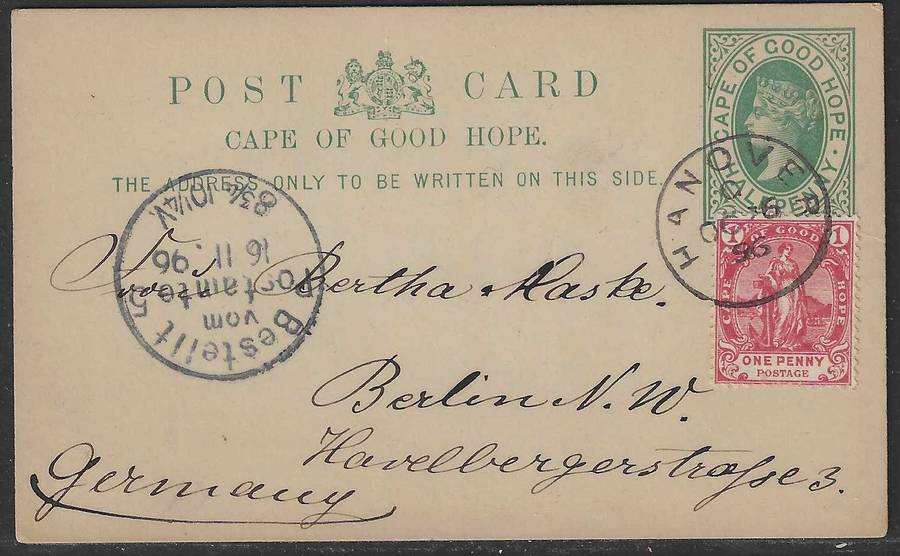 POST CARD
CAPE OF GOOD HOPE.
THE ADDRESS ONLY TO BE WRITTEN ON THIS SIDE.
CAPE OF GOOD HOPE
HALF PENNY
HANOVER
OC
96
1 1
CAPE OF GOOD HOPE
ONE PENNY
POSTAGE
Bestellt
vom
Postamte 5
16 11. 96
8¾ 10¼V.
Bertha Maske.
Berlin N. W.
Havelbergerstraſse 3.
Germany